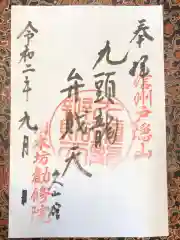 奉拝
信州戸隠山
九頭龍
弁財天
久山館
令和二年九月
宿坊勧修院